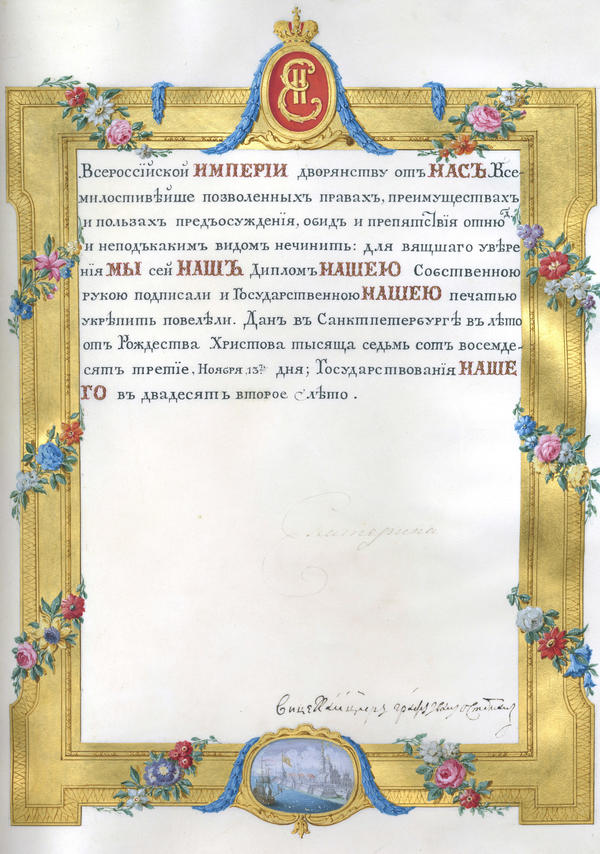 Е II
Всероссійской ИМПЕРІИ дворянству отъ НАСЪ Все-
милостивѣйше позволенныхъ правахъ, преимуществахъ
и пользахъ предъосужденія, обидъ и препятствія отнюдъ
и неподъкакимъ видомъ нечинить: для вящшаго увѣре
нія МЫ сей НАШЪ Дипломъ НАШЕЮ Собственною
рукою подписали и Государственною НАШЕЮ печатью
укрѣпить повелѣли. Данъ въ Санктпетербургѣ въ лѣто
отъ Рождества Христова тысяща седьмь сотъ восемде-
сятъ третіе, Ноября, 13го дня; Государствованія НАШЕ
ГО въ двадесятъ второе лѣто .
Екатерина
Вице Канцлеръ графъ Иванъ Остерманъ